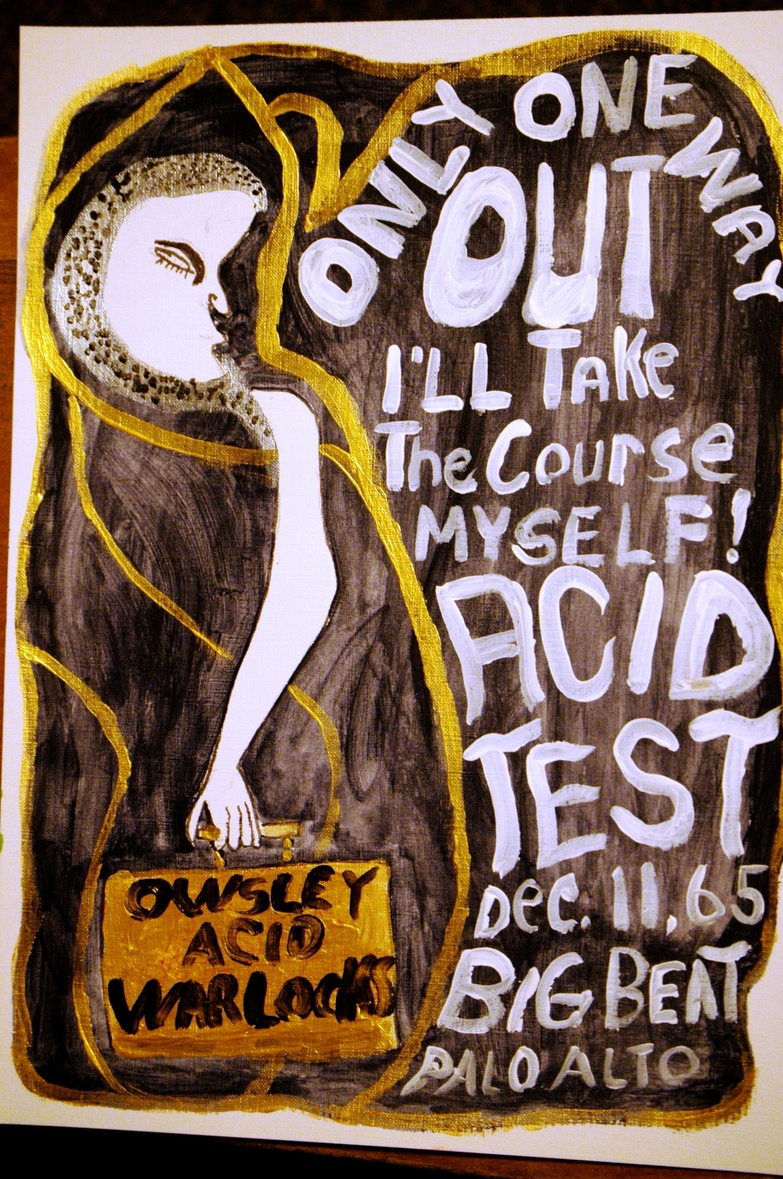 ONLY ONE WAY
OUT
I'LL TAKe
The Course
MYSELF!
ACID
TEST
Dec. 11, 65
BIG BEAT
PALO ALTO
OWSLEY
ACID
WARLOCKS